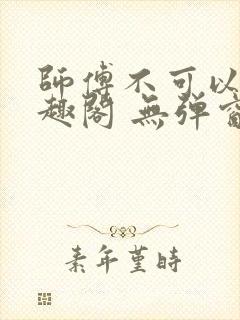 師傅不可以
趣閣 無彈
素年堇時